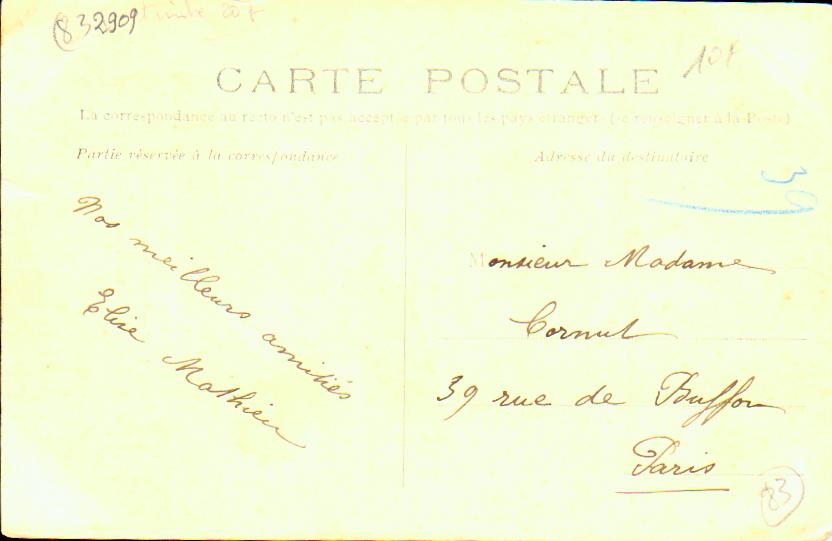 832909 timbre 20f
10f
CARTE POSTALE
La correspondance au recto n'est pas acceptée par tous les pays étrangers (se renseigner à la Poste)
Partie réservée à la correspondance
Adresse du destinataire
39
Nos meilleurs amitiés
Elise Mathieu
Monsieur Madame
Cornut
39 rue de Buffon
Paris
83